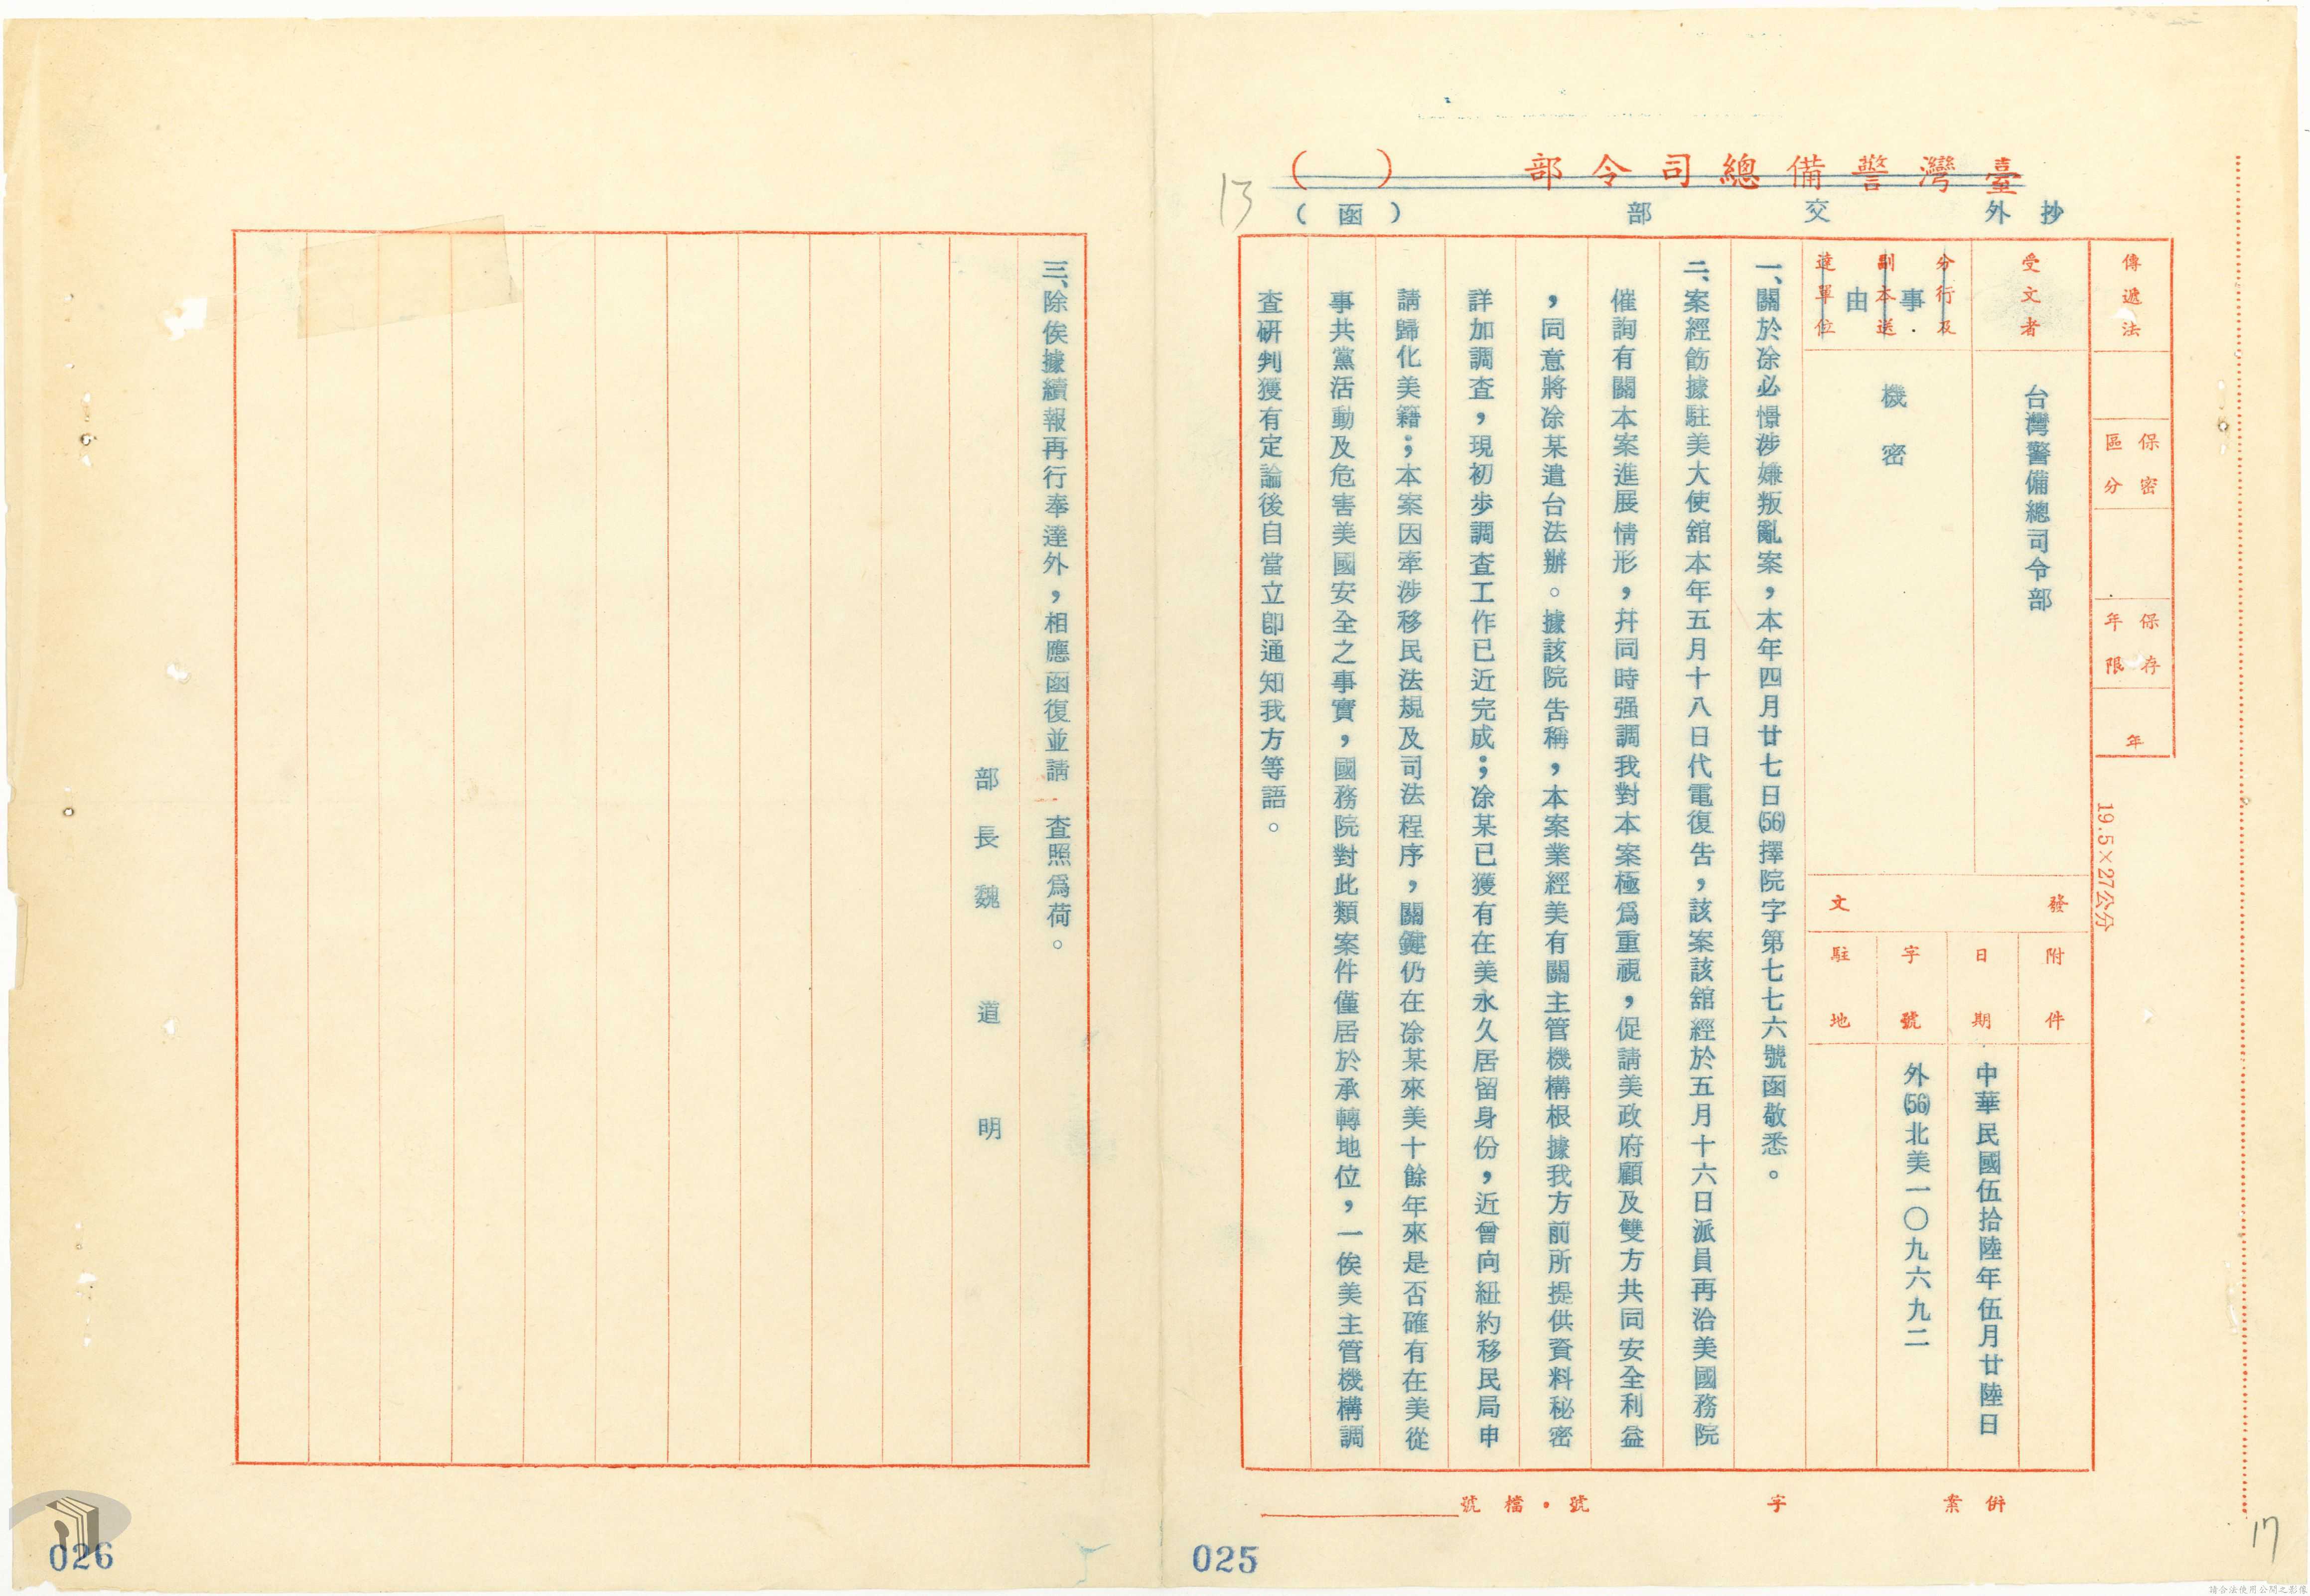 臺灣警備總司令部（　）
抄外交部（函）
13
傳遞法
保密區分
保存年限
年
19.5×27公分
受文者
台灣警備總司令部
分行及副本送達單位
事由
機密
發文
附件
日期
中華民國伍拾陸年伍月廿陸日
字號
外(56)北美一〇九六九二
駐地
一、關於涂必憬涉嫌叛亂案，本年四月廿七日(56)擇院字第七七六號函敬悉。
二、案經飭據駐美大使舘本年五月十八日代電復告，該案該舘經於五月十六日派員再洽美國務院
催詢有關本案進展情形，幷同時强調我對本案極爲重視，促請美政府顧及雙方共同安全利益
，同意將涂某遣台法辦。據該院告稱，本案業經美有關主管機構根據我方前所提供資料秘密
詳加調查，現初步調查工作已近完成；涂某已獲有在美永久居留身份，近曾向紐約移民局申
請歸化美籍；本案因牽涉移民法規及司法程序，關鍵仍在涂某來美十餘年來是否確有在美從
事共黨活動及危害美國安全之事實，國務院對此類案件僅居於承轉地位，一俟美主管機構調
查研判獲有定論後自當立卽通知我方等語。
併案　字　號・檔號
025
17
三、除俟據續報再行奉達外，相應函復並請　查照爲荷。
部長魏道明
026
請合法使用公開之影像